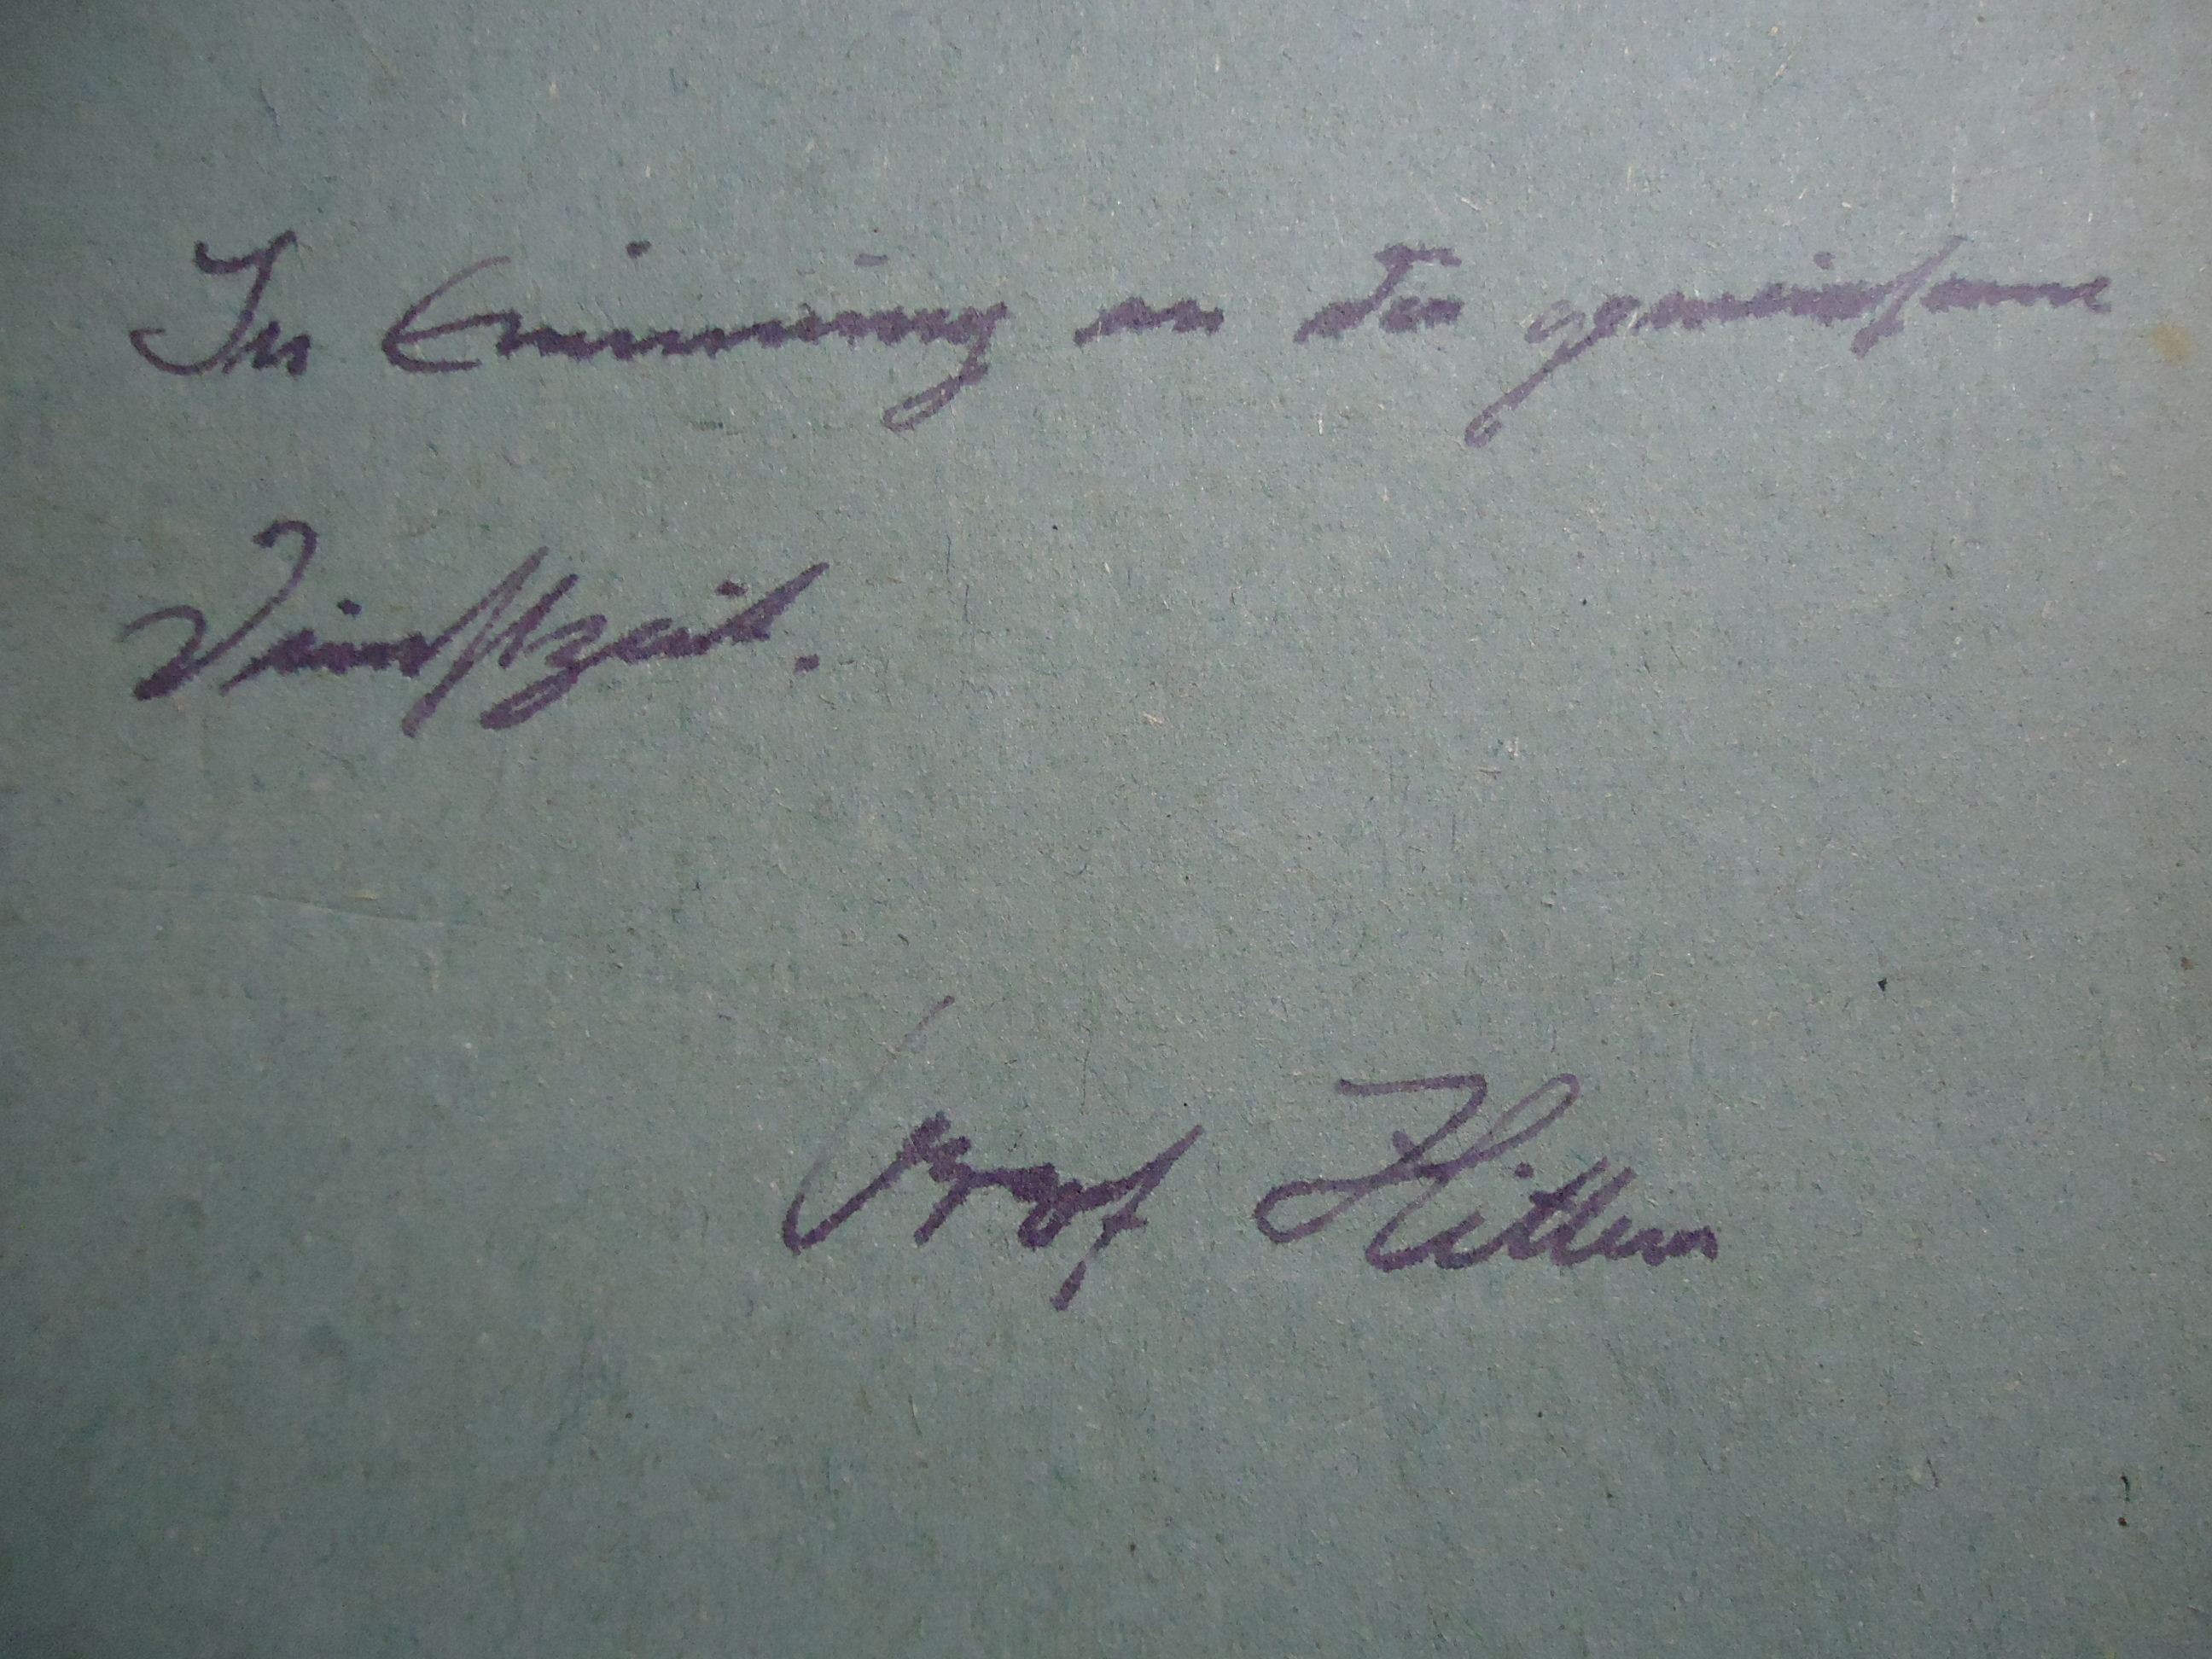 In Erinnerung an die gemeinsame
Dienstzeit.
Prof